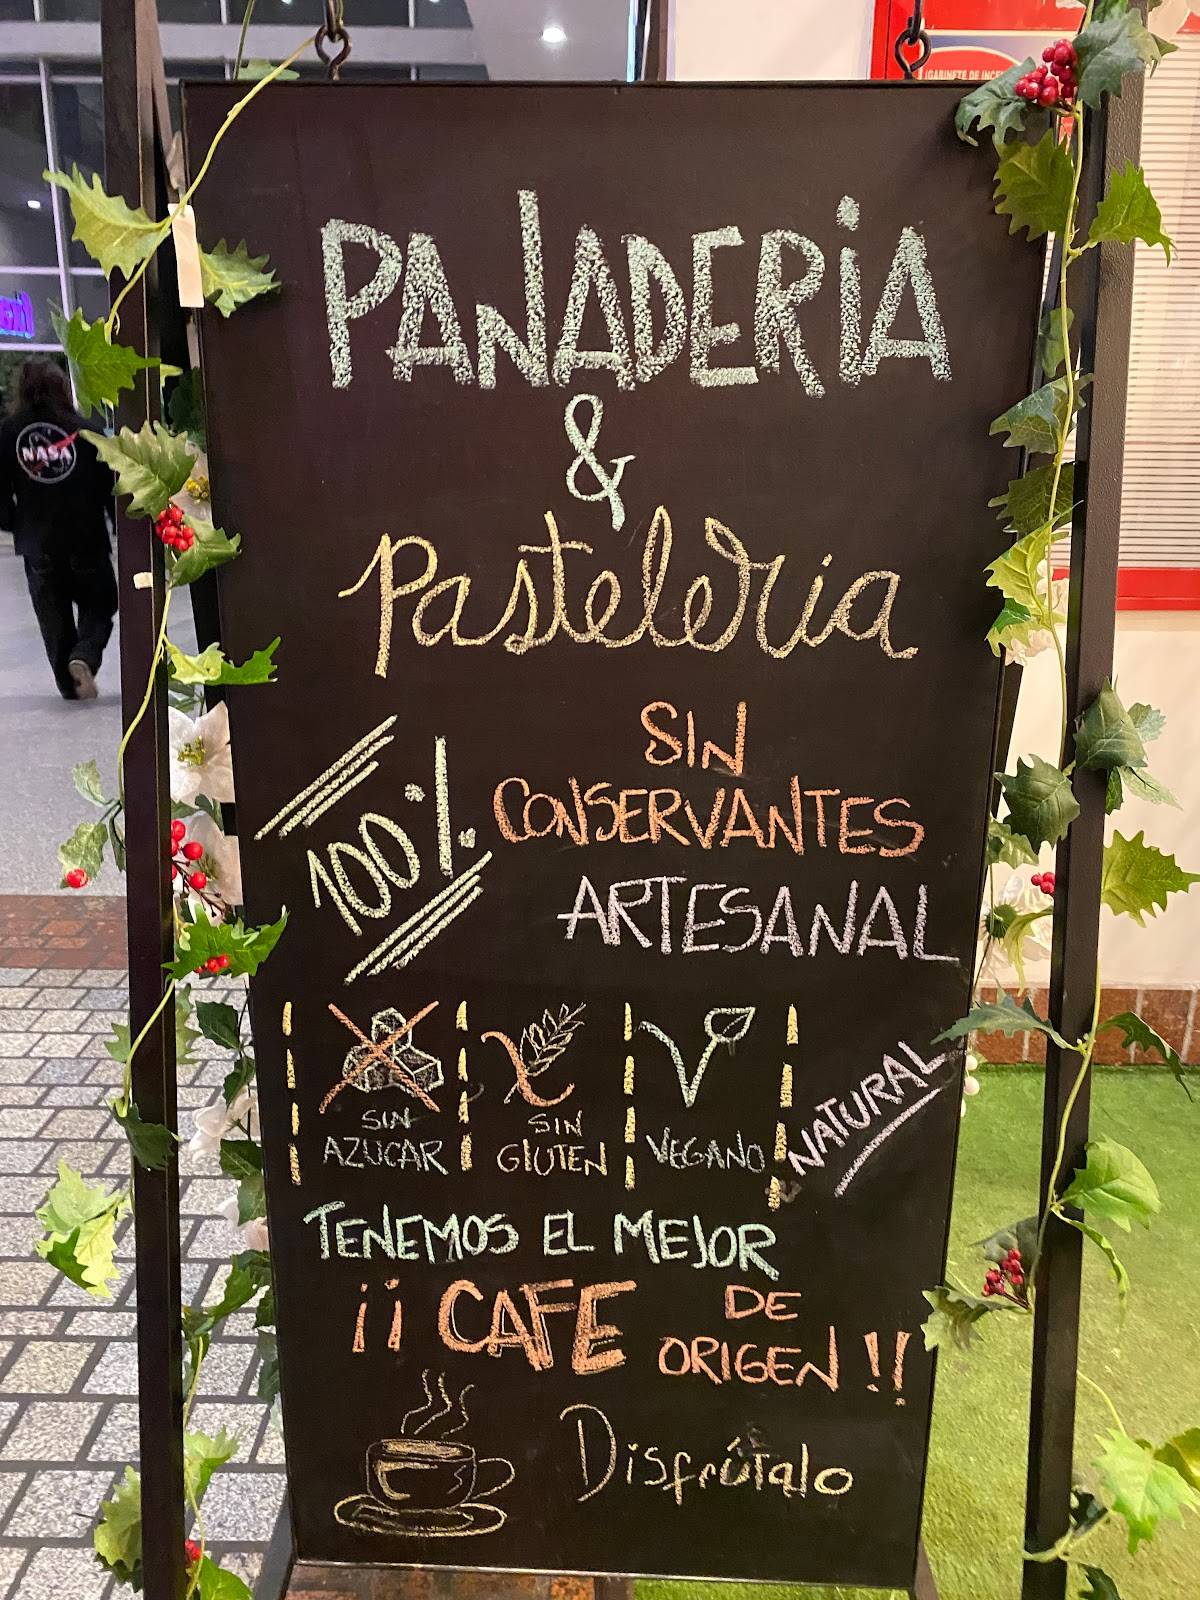 ¡GABINETE DE
NASA
PANADERiA
&
Pasteleria
100%
SIN
CONSERVANTES
ARTESANAL
SIN
AZUCAR
SIN
GlUTEN
VEGANO
NATURAL
TENEMOS EL MEJOR
¡¡ CAFE DE
ORIGEN !!
Disfrútalo